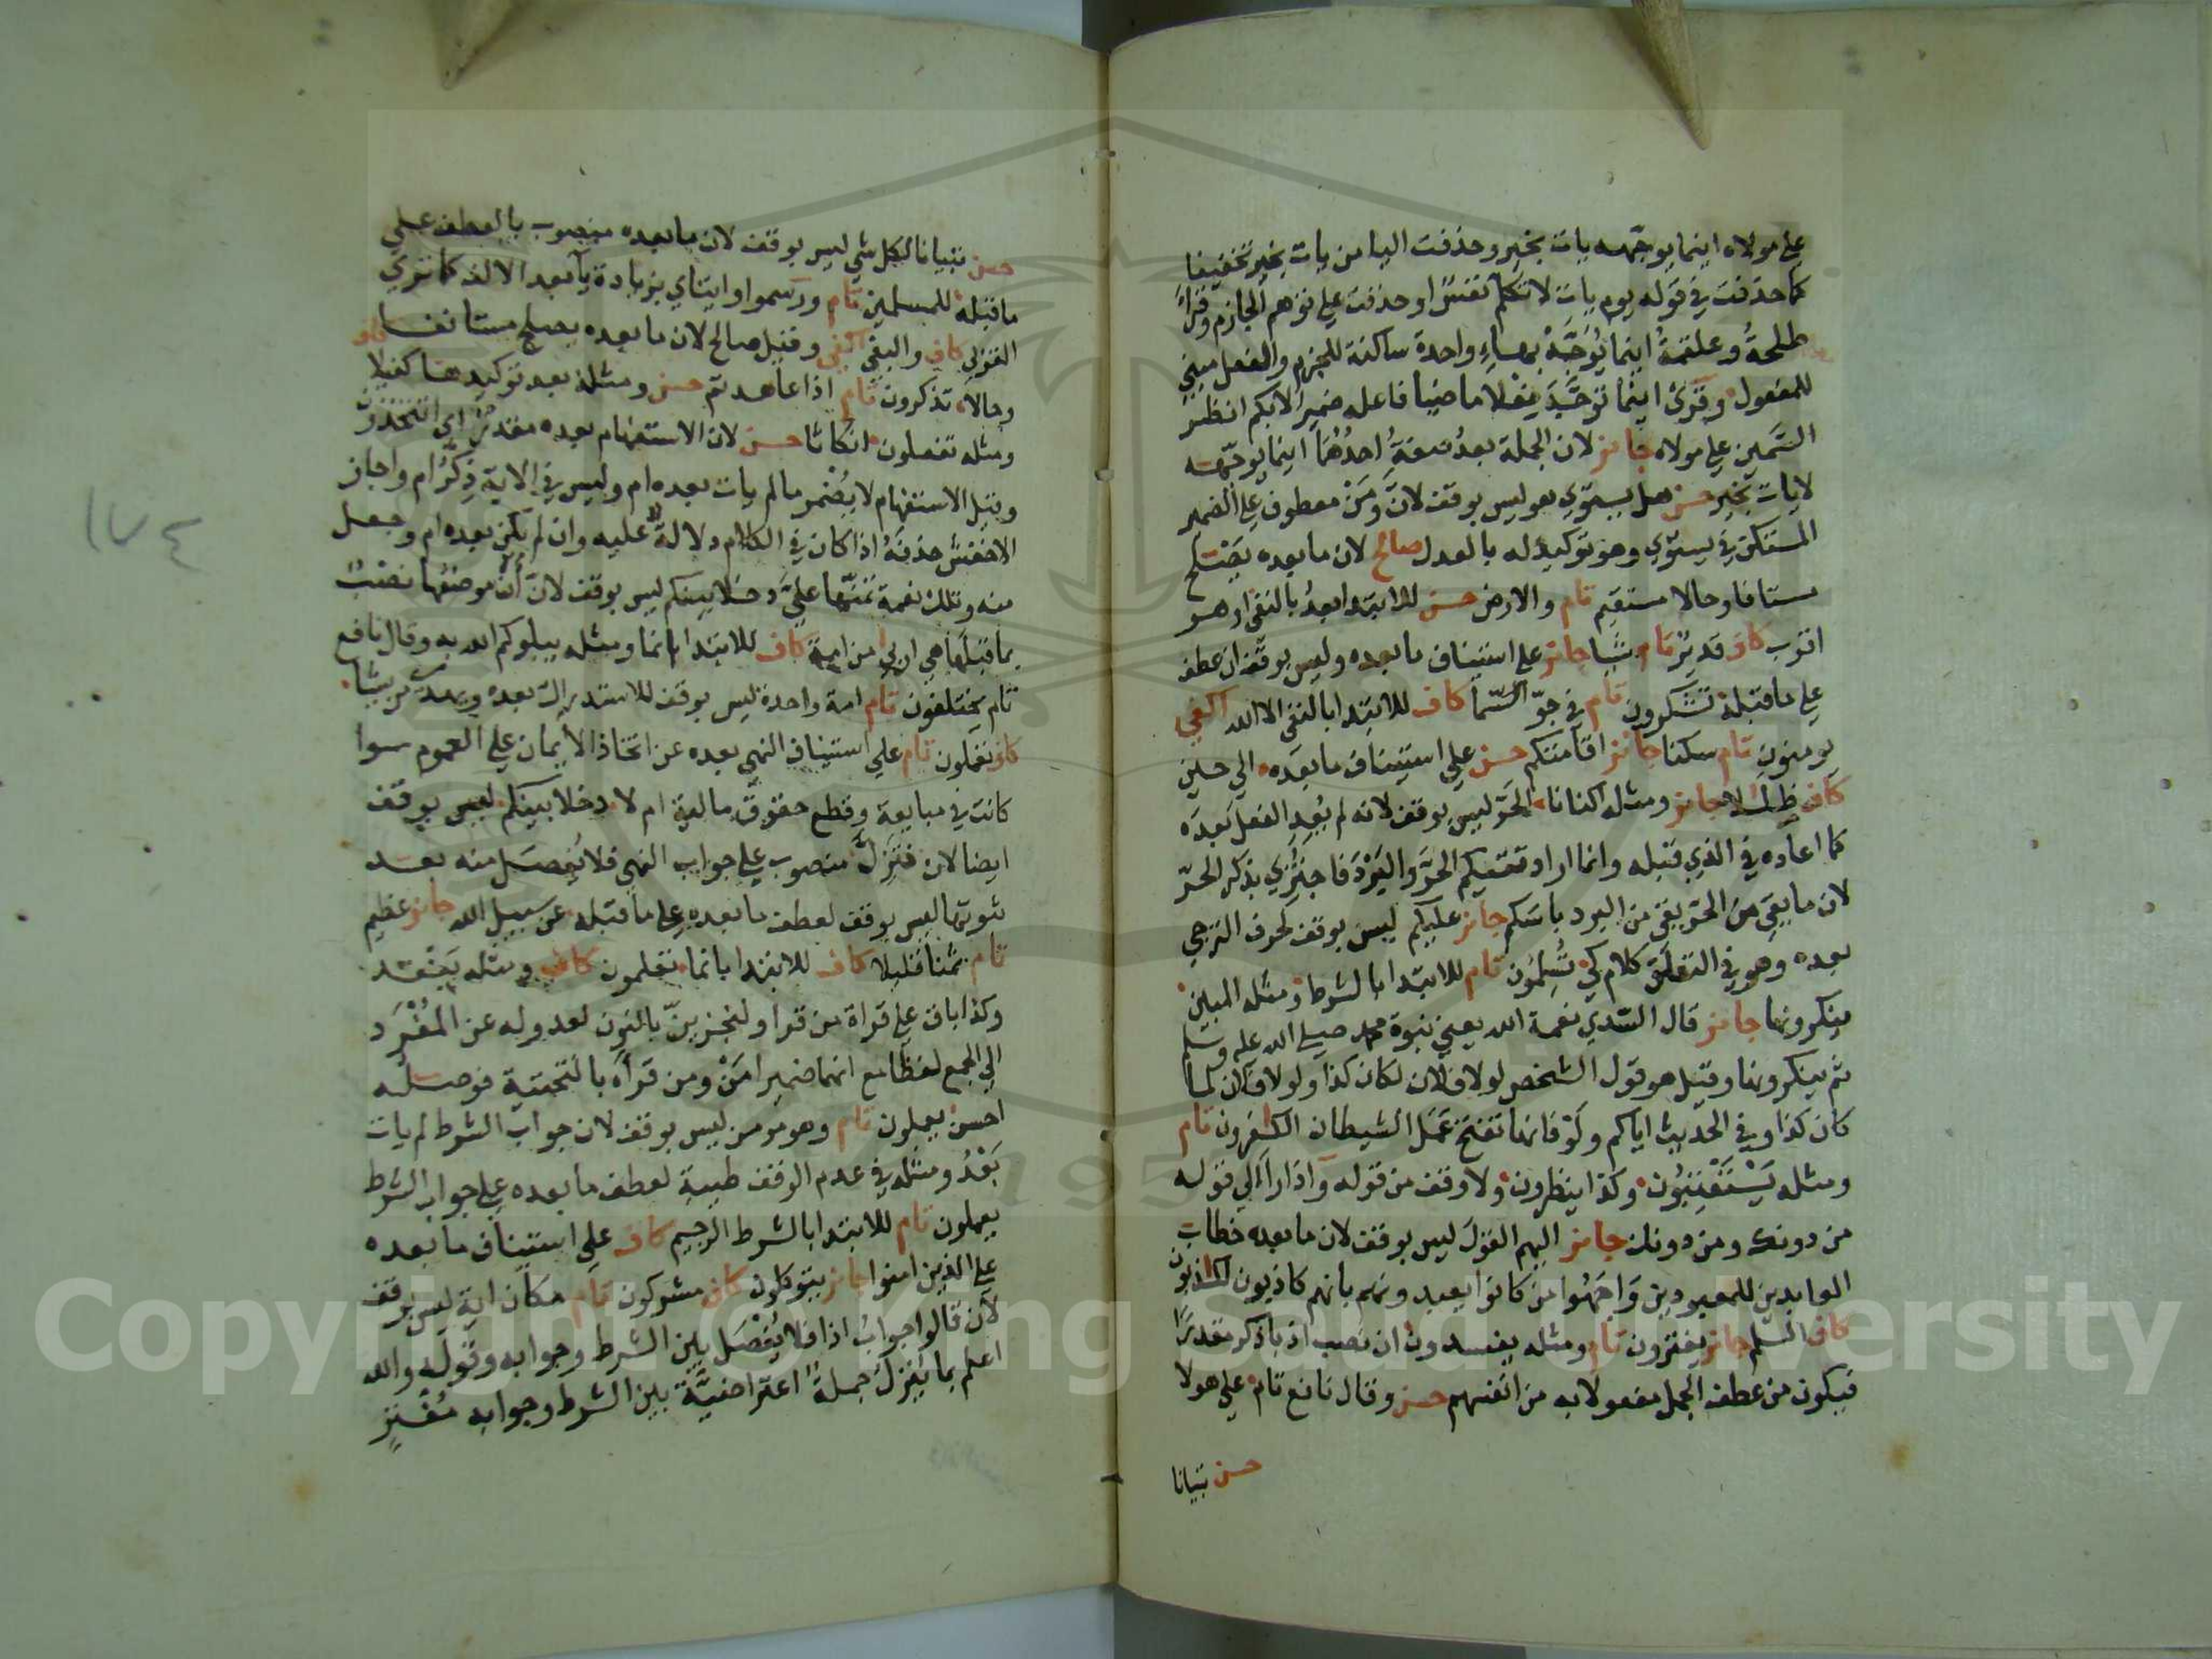 على مولاه اينما يوجهه يات بخير وحذفت اليا من يات بخير تخفيفا
كما حذفت في قوله يوم يات لا تكلم نفس او حذفت على توهم الجازم وقرأ
طلحةُ وعلقمةُ اينما يُوَجَّهْ بهاءٍ واحدة ساكنة للجزم والفعل مبني
للمفعول وقرئ اينما تَوَجَّهَ فعلا ماضيا فاعله ضمير الابكم انظر
السَّمين على مولاه جائز لان الجملة بعدُ صفةُ احدُهُما اينما يوجّهه
لايات بخير حسن هل يستوي هو ليس بوقف لانَّ ومَنْ معطوف على الضمير
المستكن في يستوي وهو توكيد له بالعدل صالح لان ما بعده يَصْلح
مستانفا وحالا مستقيم تام والارض حسن للابتداء بعدُ بالنفي او هو
اقرب كاف قدير تام شيا جائز على استيناف ما بعده وليس بوقف ان عطف
على ما قبله تشكرون تام في جوّ السّما كاف للابتدا بالنفي الا الله اكفى
يومنون تام سكنا جائز اقامتكم حسن على استيناف ما بعده الى حين
كاف ظلالا جائز ومثله اكنانا الحرّ ليس بوقف لانه لم يُعِدِ الفعل بَعدَه
كما اعاده في الذي قبله وانما اراد تقيكم الحَرَّ والبَرْدَ فاجتُزِي بذكر الحَرّ
لان ما يقي من الحرّ يقي من البرد باسَكم جائز عليكم ليس بوقف لحرف الترجي
بعده وهو في التعلق كلام كي تُسْلِمُون تام للابتدا بالشرط ومثله المبين
ينكرونها جائز قال السّدي نعمة الله يعني نبوة محمد صلى الله عليه وسلم
ثم ينكرونها وقيل هو قول الشخص لولا فلان لكان كذا ولولا فلان لما
كان كذا وفي الحديث اياكم ولَوْ فانها تفتح عَمَل الشيطان الكفرون تام
ومثله يُسْتَعْتَبُون وكذا ينظرون ولا وقف من قوله واذا راَ الى قوله
من دونك ومن دونك جائز اليهم القول ليس بوقف لان ما بعده خطاب
العابدين للمعبودين وَاجَهُوا من كانوا يعبدونهم بانهم كاذبون لكاذبون
كاف السّلم جائز يفترون تام ومثله يفسدون ان نصب اذ باذكر مقدرًا
فيكون من عطف الجمل مفعولا به من انفسهم حسن وقال نافع تام على هولا
حسن تبيانا
حسن تبيانا لكل شي ليس بوقف لان ما بعده منصوب بالعطف على
ما قبله للمسلمين تام ورسموا وايتاي بزيادة يآ بعد الالف كما ترى
القربى كاف والبغي اكفى وقيل صالح لان ما بعده يصلح مستانفا
وحالا تذكرون تام اذا عاهدتم حسن ومثله بعد توكيدها كفيلا كاف
ومثله تفعلون انكاثا حسن لان الاستفهام بعده مقدر اي اتتخذون
وقيل الاستفهام لا يُضمر ما لم يات بعده ام وليس في الاية ذِكرُ ام واجاز
الاخفش حذفَهُ اذا كان في الكلام دلالة عليه وان لم يكن بعده ام وجعل
منه وتلك نعمة تمنّها عليَّ دخلا بينكم ليس بوقف لانّ أنْ موضعُها نصْبٌ
بما قبلَها هي اربى من امة كاف للابتدا بانما ومثله يبلوكم الله به وقال نافع
تام تختلفون تام امة واحدة ليس بوقف للاستدراك بعده ويهدي من يشا
كاف تعملون تام على استيناف النهي بعده عن اتخاذ الأيمان على العموم سوا
كانت في مبايعة وقطع حقوق مالية ام لا دخلا بينكم ليس بوقف
ايضا لان فتَزِلَّ منصوب على جواب النهي فلا يُفصَل منه بعد
ثبوتها ليس بوقف لعطف ما بعده على ما قبله عن سبيل الله جائز عظيم
تام ثمنا قليلا كاف للابتدا بانما تعلمون كاف ومثله يَنْفَد
وكذا باق على قراة من قرا ولنجزينّ بالنون لعدوله عن المُفْرَد
الى الجمع لفظًا مع انهما ضمير امَنْ ومن قرأه بالتحتية فوصلُه
احسن يعملون تام وهو مومن ليس بوقف لان جواب الشرط لم يات
بَعْدُ ومثله في عدم الوقف طيبة لعطف ما بعده على جواب الشرط
يعملون تام للابتدا بالشرط الرجيم كاف على استيناف ما بعده
على الذين امنوا جائز يتوكلون كاف مشركون تام مكان اية ليس بوقف
لان قالوا جوابُ اذا فلا يُفْصَل بين الشرط وجوابه وقوله والله
اعلم بما يُنَزِّل جملةٌ اعتراضيَّة بين الشرط وجوابه مُفْتَرٍ
١٧٤
Copyright © King Saud University
195